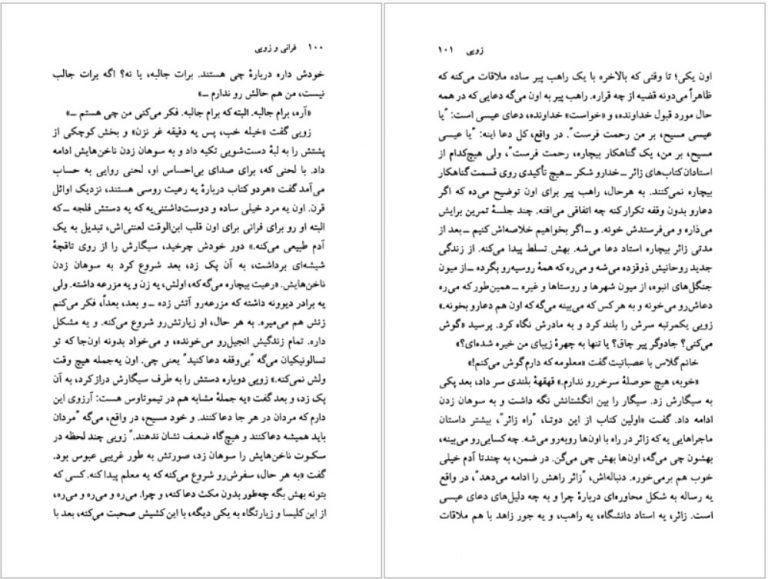 ۱۰۰ فرانی و زویی
خودش داره دربارهٔ چی هستند. برات جالبه، یا نه؟ اگه برات جالب
نیست، من هم حالش رو ندارم ــ»
«آره، برام جالبه. البته که برام جالبه. فکر می‌کنی من چی هستم ــ»
زویی گفت «خیله خب، پس یه دقیقه غر نزن» و بخش کوچکی از
پشتش را به لبهٔ دست‌شویی تکیه داد و به سوهان زدن ناخن‌هایش ادامه
داد. با لحنی که، برای صدای بی‌احساس او، لحنی روایی به حساب
می‌آمد گفت «هردو کتاب دربارهٔ یه رعیت روسی هستند، نزدیک اوائل
قرن. اون یه مرد خیلی ساده و دوست‌داشتنی‌یه که یه دستش فلجه ــ که
البته او رو برای فرانی برای اون قلب ابن‌الوقت لعنتی‌اش، تبدیل به یک
آدم طبیعی می‌کنه.» دور خودش چرخید، سیگارش را از روی تاقچهٔ
شیشه‌ای برداشت، به آن پک زد، بعد شروع کرد به سوهان زدن
ناخن‌هایش. «رعیت بیچاره می‌گه که، اولش، یه زن و یه مزرعه داشته. ولی
یه برادر دیوونه داشته که مزرعه‌رو آتش زده ــ و بعد، بعداً، فکر می‌کنم
زنش هم می‌میره. به هر حال، او زیارتش‌رو شروع می‌کنه. و یه مشکل
داره. تمام زندگیش انجیل‌رو می‌خونده، و می‌خواد بدونه اون‌جا که تو
تسالونیکیان می‌گه "بی‌وقفه دعا کنید" یعنی چی. اون یه‌جمله هیچ وقت
ولش نمی‌کنه.» زویی دوباره دستش را به طرف سیگارش دراز کرد، به آن
پک زد، و بعد گفت «یه جملهٔ مشابه هم در تیموتاوس هست: آرزوی این
دارم که مردان در هر جا دعا کنند. و خود مسیح، در واقع، می‌گه "مردان
باید همیشه دعا کنند و هیچ‌گاه ضعف نشان ندهند."» زویی چند لحظه در
سکوت ناخن‌هایش را سوهان زد، صورتش به طور غریبی عبوس بود.
گفت «به هر حال، سفرش‌رو شروع می‌کنه که یه معلم پیدا کنه. کسی که
بتونه بهش بگه چه‌طور بدون مکث دعا کنه، و چرا. می‌ره و می‌ره و می‌ره،
از این کلیسا و زیارتگاه به یکی دیگه، با این کشیش صحبت می‌کنه، بعد با
زویی ۱۰۱
اون یکی؛ تا وقتی که بالاخره با یک راهب پیر ساده ملاقات می‌کنه که
ظاهراً می‌دونه قضیه از چه قراره. راهب پیر به اون می‌گه دعایی که در همه
حال مورد قبول خداونده، و «خواست» خداونده، دعای عیسی است: "یا
عیسی مسیح، بر من رحمت فرست". در واقع، کل دعا اینه: "یا عیسی
مسیح، بر من، یک گناهکار بیچاره، رحمت فرست"، ولی هیچ‌کدام از
استادان کتاب‌های زائر ــ خدارو شکر ــ هیچ تأکیدی روی قسمت گناهکار
بیچاره نمی‌کنند. به هرحال، راهب پیر برای اون توضیح می‌ده که اگر
دعارو بدون وقفه تکرار کنه چه اتفاقی می‌افته. چند جلسهٔ تمرین برایش
می‌ذاره و می‌فرستدش خونه. و ــ اگر بخواهیم خلاصه‌اش کنیم ــ بعد از
مدتی زائر بیچاره استاد دعا می‌شه. بهش تسلط پیدا می‌کنه. از زندگی
جدید روحانیش ذوق‌زده می‌شه و می‌ره که همهٔ روسیه‌رو بگرده ــ از میون
جنگل‌های انبوه، از میون شهرها و روستاها و غیره ــ همین‌طور که می‌ره
دعاش‌رو می‌خونه و به هر کس که می‌بینه می‌گه که اون هم دعارو بخونه.»
زویی یکمرتبه سرش را بلند کرد و به مادرش نگاه کرد. پرسید «گوش
می‌کنی؟ جادوگر پیر چاق؟ یا تنها به چهرهٔ زیبای من خیره شده‌ای؟»
خانم گلاس با عصبانیت گفت «معلومه که دارم گوش می‌کنم!»
«خوبه، هیچ حوصلهٔ سرخررو ندارم.» قهقههٔ بلندی سر داد، بعد پکی
به سیگارش زد. سیگار را بین انگشتانش نگه داشت و به سوهان زدن
ادامه داد. گفت «اولین کتاب از این دوتا، "راه زائر"، بیشتر داستان
ماجراهایی یه که زائر در راه با اون‌ها روبه‌رو می‌شه. چه کسایی‌رو می‌بینه،
بهشون چی می‌گه، اون‌ها بهش چی می‌گن. در ضمن، به چندتا آدم خیلی
خوب هم برمی‌خوره. دنباله‌اش، "زائر راهش را ادامه می‌دهد"، در واقع
یه رساله به شکل محاوره‌ای دربارهٔ چرا و به چه دلیل‌های دعای عیسی
است. زائر، یه استاد دانشگاه، یه راهب، و یه جور زاهد با هم ملاقات